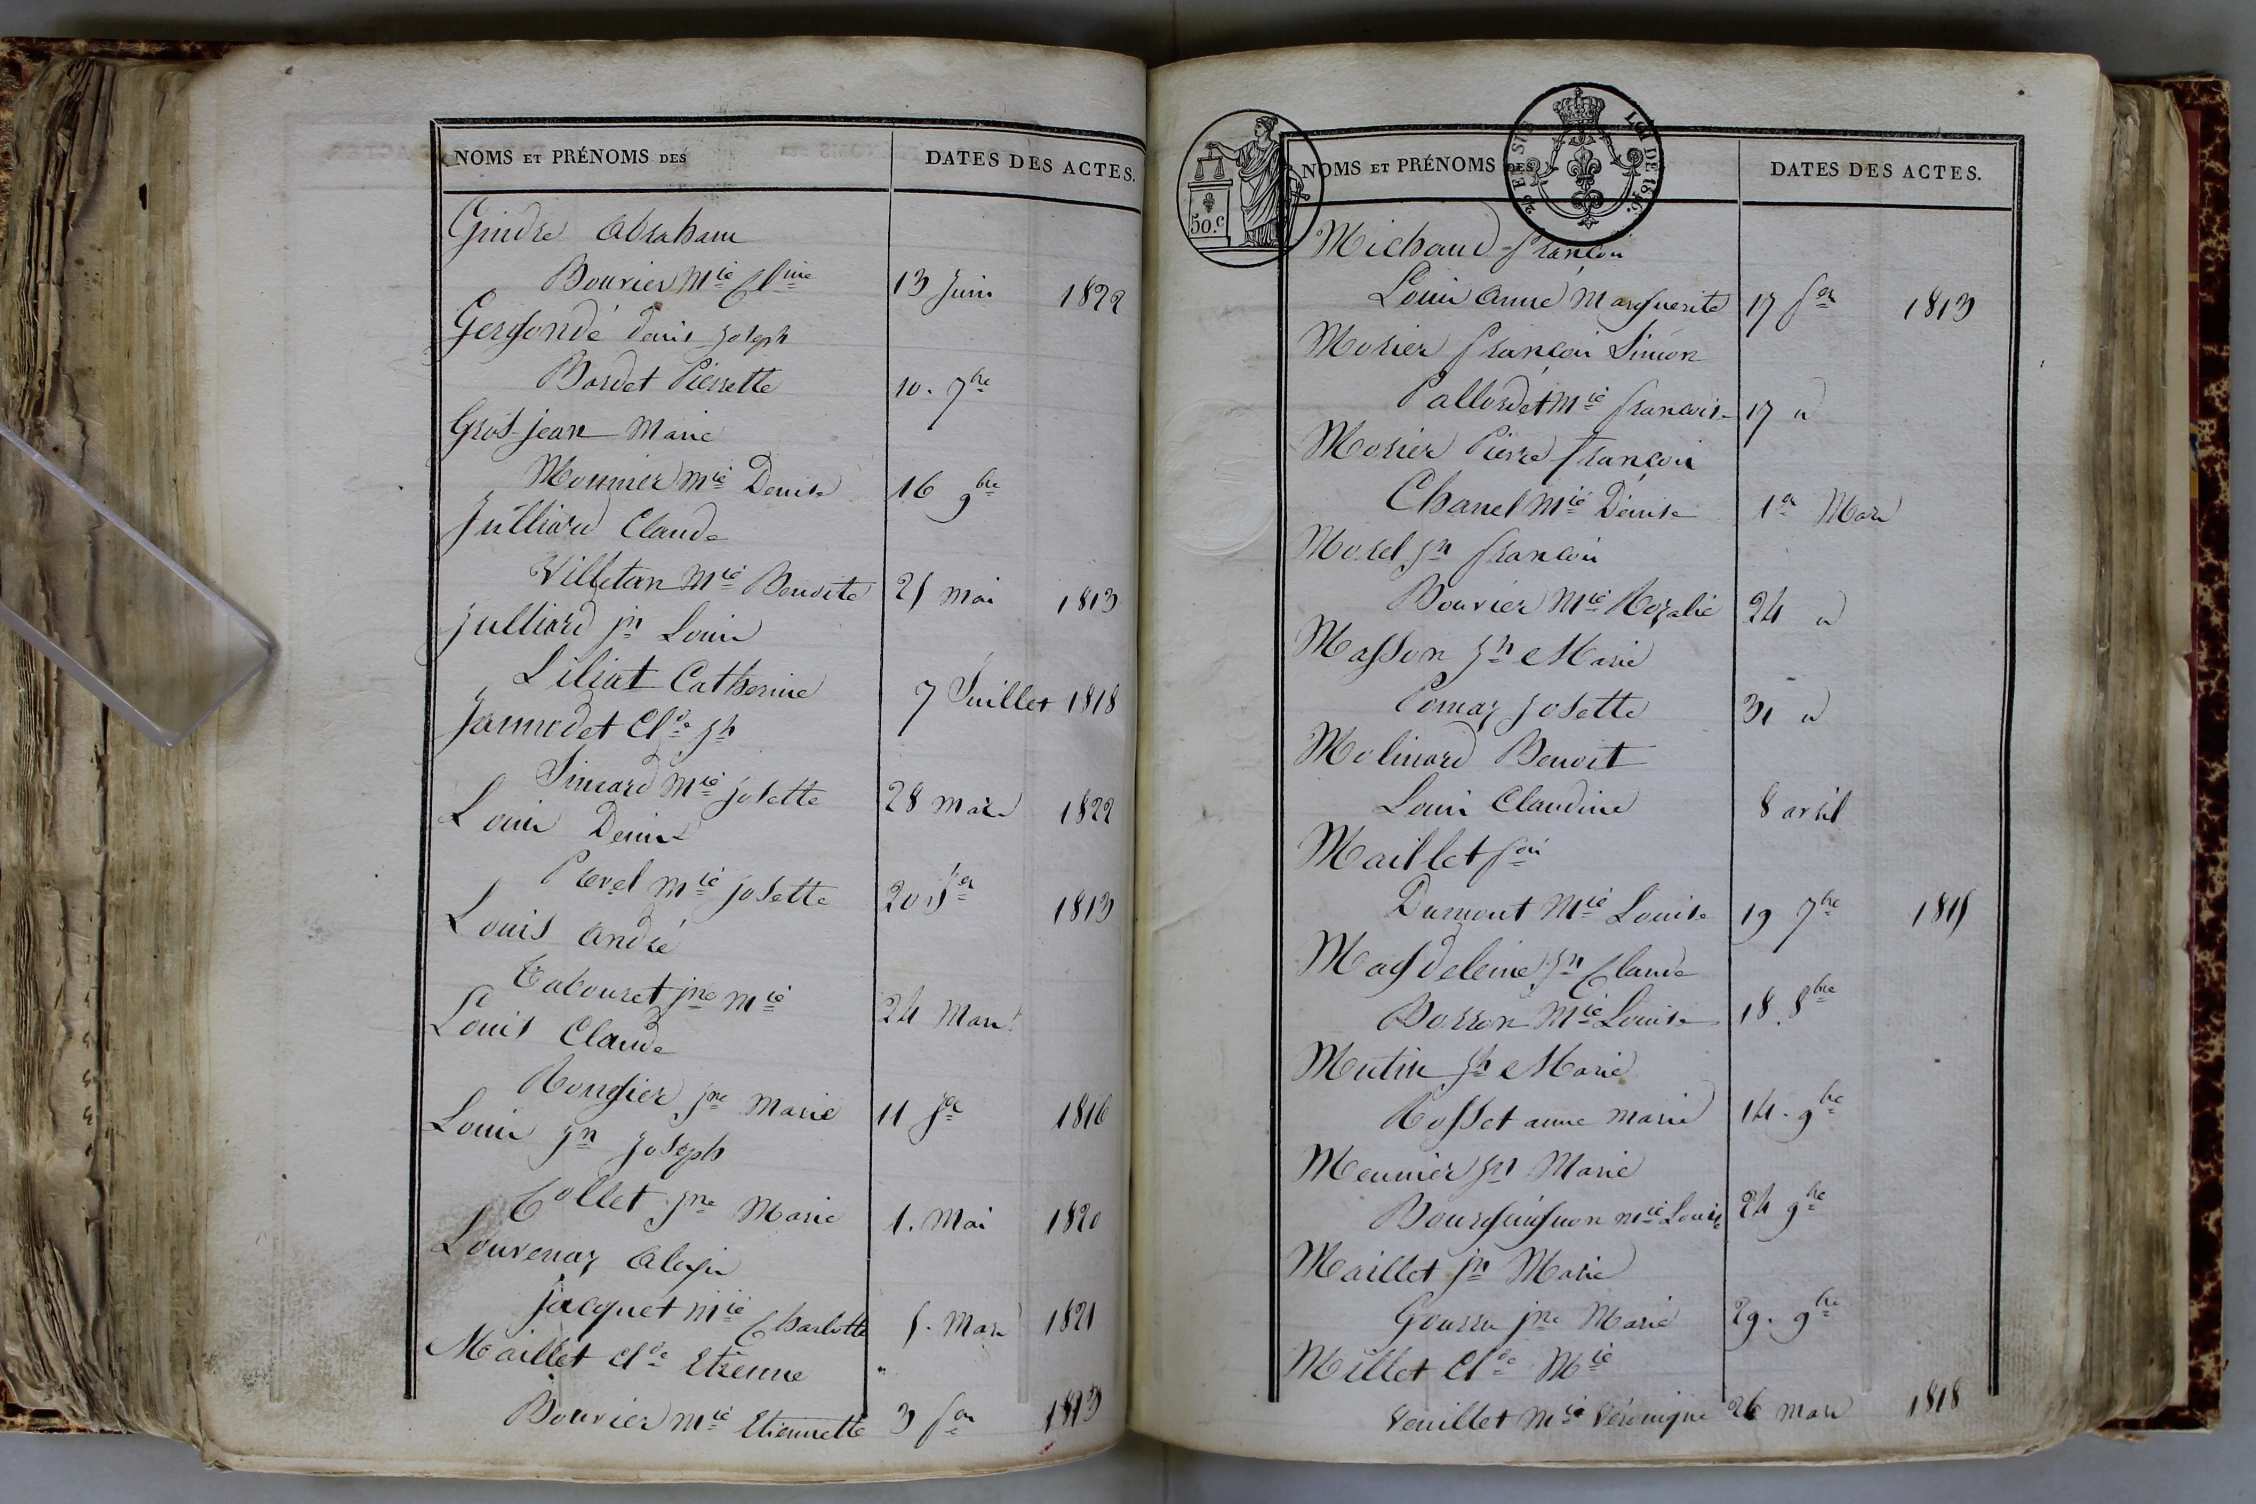 NOMS ET PRÉNOMS DES DATES DES ACTES.
Gindre Abraham
Bouvier Mie Cline 13 Juin 1822
Gergondé Denis Joseph
Bordet Pierrette 10. 7bre
Gros-jean Marie
Mounier Mie Denise 16 9bre
Julliard Claude
Villetan Mie Benoite 25 mai 1813
Julliard Jn Louis
Liliat Catherine 7 Juillet 1818
Jannodet Clde Jh
Simard Mie Josette 28 mars 1822
Louis Denis
Prevel Mie Josette 20 fer 1813
Louis André
Tabouret jne Mie 24 Mars
Louis Claude
Rongier Jne Marie 11 Jer 1816
Louis Jn Joseph
Collet Jne Marie 1. Mai 1820
Louvenaz Alexis
Jacquet Mie Charlotte 5. Mars 1821
Maillet Clde Etienne "
Bouvier Mie Etiennette 3 fer 1813
NOMS ET PRÉNOMS DES DATES DES ACTES.
50.c
LOI DE 1816.
Michaud françois
Louis Anne Marguerite 17 fer 1813
Morier françois Simon
Pallordet Mie françoise 17 d
Morier Pierre françois
Chanel Mie Denise 1er Mars
Morel Jn françois
Bouvier Mie Rozalie 24 d
Masson Jh Marie
Comaz Josette 31 d
Molinard Benoit
Louis Claudine 8 avril
Maillet foi
Dumont Mie Louise 19 7bre 1815
Magdeleine Jn Claude
Borron Mie Louise 18. 8bre
Mutin Jh Marie
Rosset anne marie 14. 9bre
Meunier Jn Marie
Bourguignon Mie Louise 24 9bre
Maillet Jn Marie
Goursu jne Marie 29. 9bre
Millet Clde Mie
Veuillet Mie Véronique 26 mars 1818